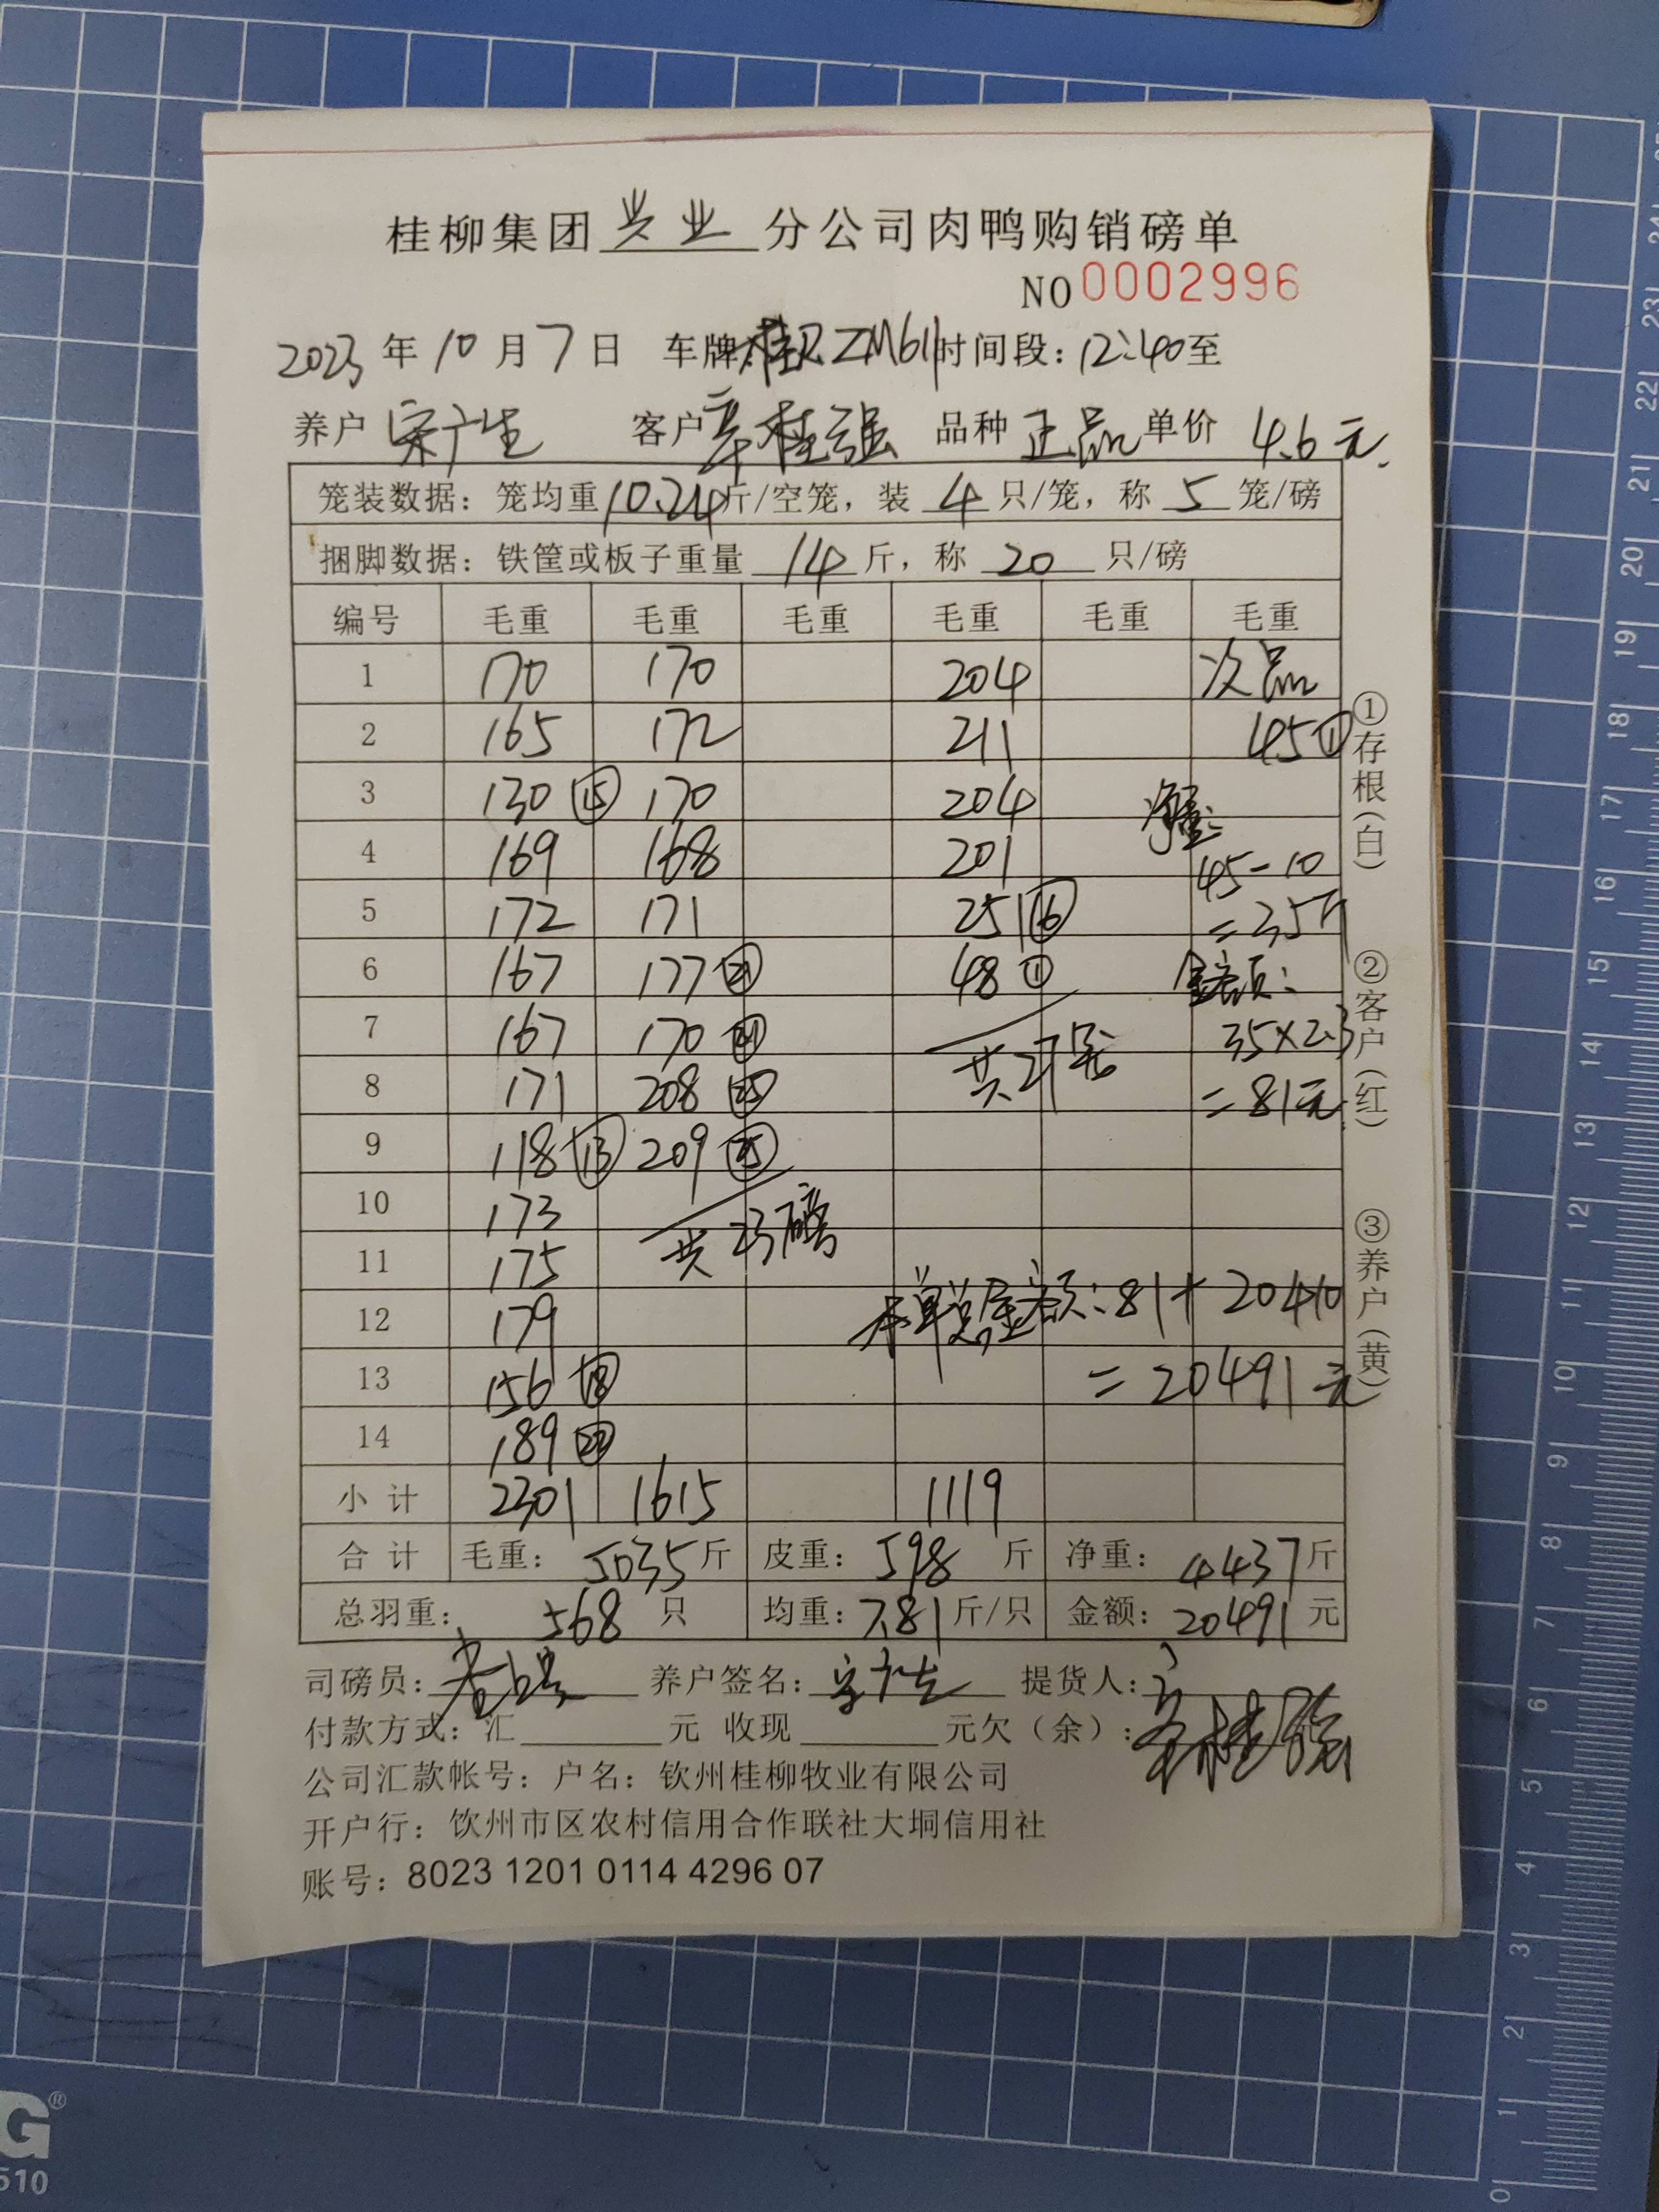 桂柳集团兴业分公司肉鸭购销磅单
NO 0002996
2023年10月7日 车牌:桂 ZM611 时间段:12:40至
养户 宋广生 客户 辛桂强 品种 正品 单价 4.6元.
笼装数据:笼均重10.24斤/空笼,装 4 只/笼,称 5 笼/磅
捆脚数据:铁筐或板子重量 14 斤,称 20 只/磅
编号 毛重 毛重 毛重 毛重 毛重 毛重
1 170 170 204 次品
2 165 172 211 45①
3 130⑮ 170 204 净重:
4 169 168 201 45-10
5 172 171 251⑯ =35斤
6 167 177㉑ 48① 金额:
7 167 170㉑ 共27笼 35×2.3
8 171 208㉕ =81元
9 118⑬ 209㉕
10 173 共23磅
11 175
12 179 本单总金额:81+20410
13 156⑱ =20491元
14 189㉒
小计 2301 1615 1119
合计 毛重:5035斤 皮重:598斤 净重:4437斤
总羽重:568 只 均重:7.81斤/只 金额:20491元
司磅员: 养户签名: 提货人:
付款方式:汇 元 收现 元欠(余): 辛桂强
公司汇款帐号:户名:钦州桂柳牧业有限公司
开户行:饮州市区农村信用合作联社大垌信用社
账号:8023 1201 0114 4296 07
①存根(白) ②客户(红) ③养户(黄)
24
23
22
21
20
19
18
17
16
15
14
13
12
11
10
9
8
7
6
5
4
3
2
1
0
G®
510